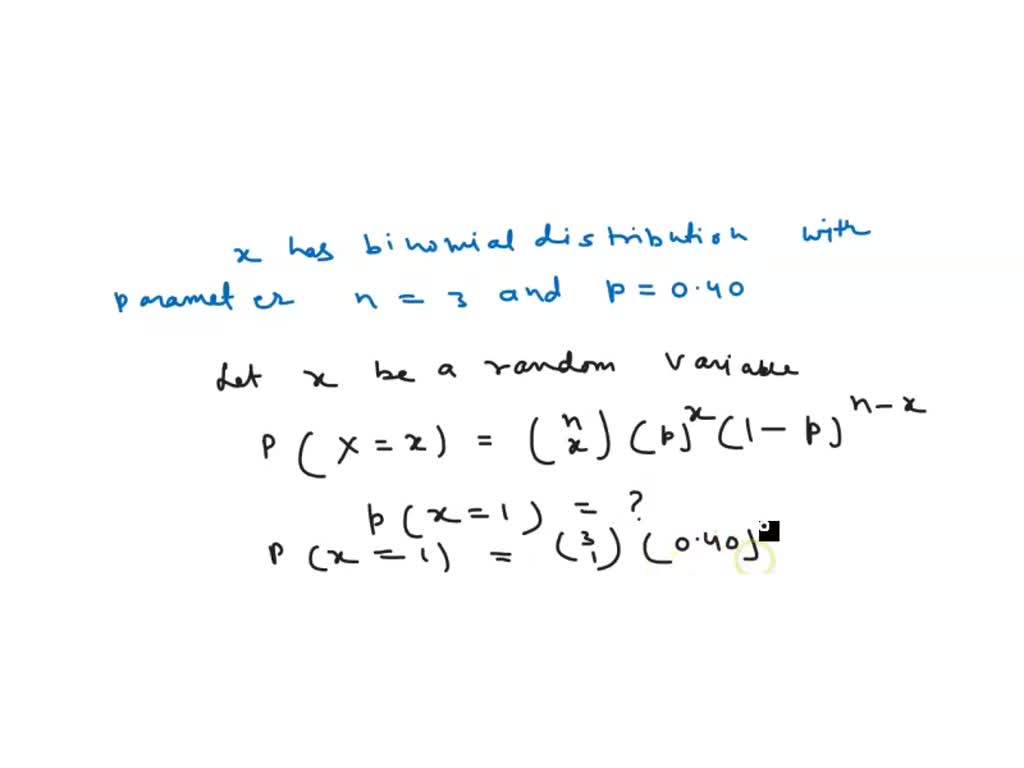 x has binomial distribution with
parameter n = 3 and p = 0.40
Let x be a random variable
P(X = x) = (n x) (p)^x (1 - p)^n-x
p(x = 1) = ?
P(x = 1) = (3 1) (0.40)